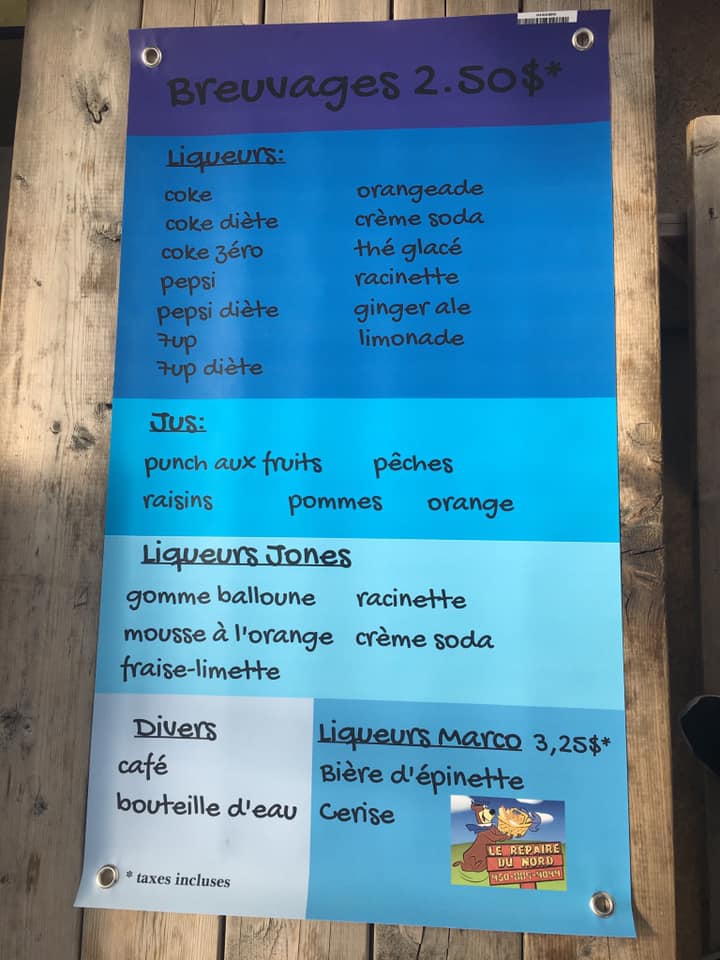 Breuvages 2.50$*
Liqueurs:
coke
coke diète
coke zéro
pepsi
pepsi diète
7up
7up diète
orangeade
crème soda
thé glacé
racinette
ginger ale
limonade
Jus:
punch aux fruits pêches
raisins pommes orange
Liqueurs Jones
gomme balloune racinette
mousse à l'orange crème soda
fraise-limette
Divers
café
bouteille d'eau
* taxes incluses
Liqueurs Marco 3,25$*
Bière d'épinette
Cerise
LE REPAIRE
DU NORD
450-885-4044